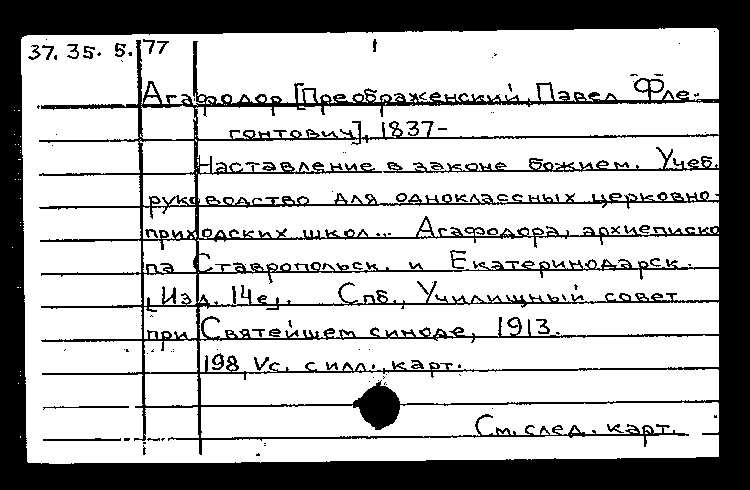 37. 35. 5. 77
Агафодор [Преображенский, Павел Фле-
гонтович], 1837-
Наставление в законе божием. Учеб.
руководство для одноклассных церковно-
приходских школ... Агафодора, архиеписко
па Ставропольск. и Екатеринодарск.
[Изд. 14е]. Спб., Училищный совет
при Святейшем синоде, 1913.
198, Vс. с илл., карт.
См. след. карт.